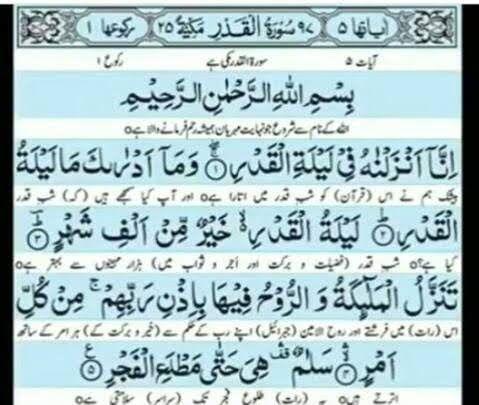 اٰیاتھا ۵ ۹۷ سُوْرَةُ الْقَدْرِ مَكِّيَّةٌ ۲۵ رکوعھا ۱
آیات ۵ سورۃ القدر مکی ہے رکوع ۱
بِسْمِ اللّٰهِ الرَّحْمٰنِ الرَّحِيْمِ
اللہ کے نام سے شروع جو نہایت مہربان ہمیشہ رحم فرمانے والا ہے o
اِنَّاۤ اَنْزَلْنٰهُ فِیْ لَیْلَةِ الْقَدْرِ ۚۖ۱ وَمَاۤ اَدْرٰىكَ مَا لَیْلَةُ
بیشک ہم نے اس (قرآن) کو شبِ قدر میں اتارا ہے o اور آپ کیا سمجھے ہیں (کہ) شبِ قدر
الْقَدْرِ ؕ۲ لَیْلَةُ الْقَدْرِ ۙ۬ خَیْرٌ مِّنْ اَلْفِ شَهْرٍ ؕؔ۳
کیا ہے؟ o شبِ قدر (فضیلت و برکت اور اَجر و ثواب میں) ہزار مہینوں سے بہتر ہے o
تَنَزَّلُ الْمَلٰٓئِكَةُ وَ الرُّوْحُ فِیْهَا بِاِذْنِ رَبِّهِمْ ۚ مِنْ كُلِّ
اس (رات) میں فرشتے اور روح الامین (جبرائیل) اپنے رب کے حکم سے (خیر و برکت کے) ہر امر کے ساتھ
اَمْرٍ ۙۛ۴ سَلٰمٌ ۛ۫ هِیَ حَتّٰى مَطْلَعِ الْفَجْرِ ۠۵
اترتے ہیں o یہ (رات) طلوعِ فجر تک (سراسر) سلامتی ہے o